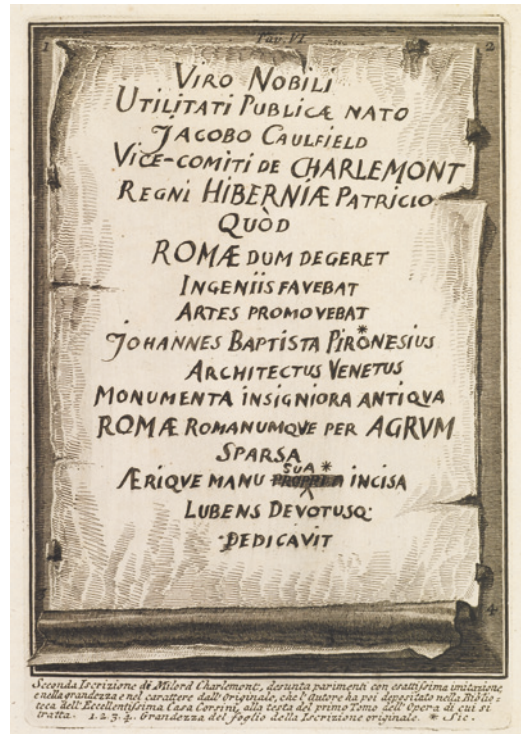 1 Tav. VI. 2
VIRO NOBILI
UTILITATI PUBLICÆ NATO
JACOBO CAULFIELD
VICE-COMITI DE CHARLEMONT
REGNI HIBERNIÆ PATRICIO
QUÒD
ROMÆ DUM DEGERET
INGENIIS FAVEBAT
ARTES PROMOVEBAT
JOHANNES BAPTISTA PIRONESIUS *
ARCHITECTUS VENETUS
MONUMENTA INSIGNIORA ANTIQVA
ROMÆ ROMANUMQVE PER AGRVM
SPARSA
SUA *
ÆRIQVE MANU PROPRIA INCISA
LUBENS DEVOTUSQ.
DEDICAVIT
4
Seconda Iscrizione di Milord Charlemont, desunta parimenti con esattissima imitazione,
e nella grandezza e nel carattere dall'originale, che l'Autore ha poi depositato nella Biblio-
teca dell'Eccellentissima Casa Corsini, alla testa del primo Tomo dell'Opera di cui si
tratta. 1.2.3.4. Grandezza del foglio della Iscrizione originale. * Sic.